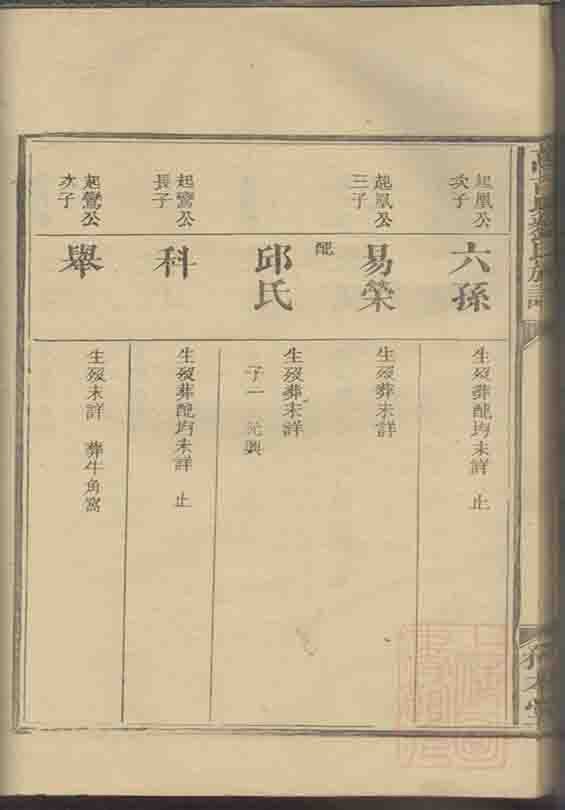 起鳳公
次子
六孫
生歿葬配均未詳 止
起鳳公
三子
易榮
生歿葬未詳
配
邱氏
生歿葬未詳
子一 元興
起鸞公
長子
科
生歿葬配均未詳 止
起鸞公
次子
舉
生歿未詳 葬牛角窩